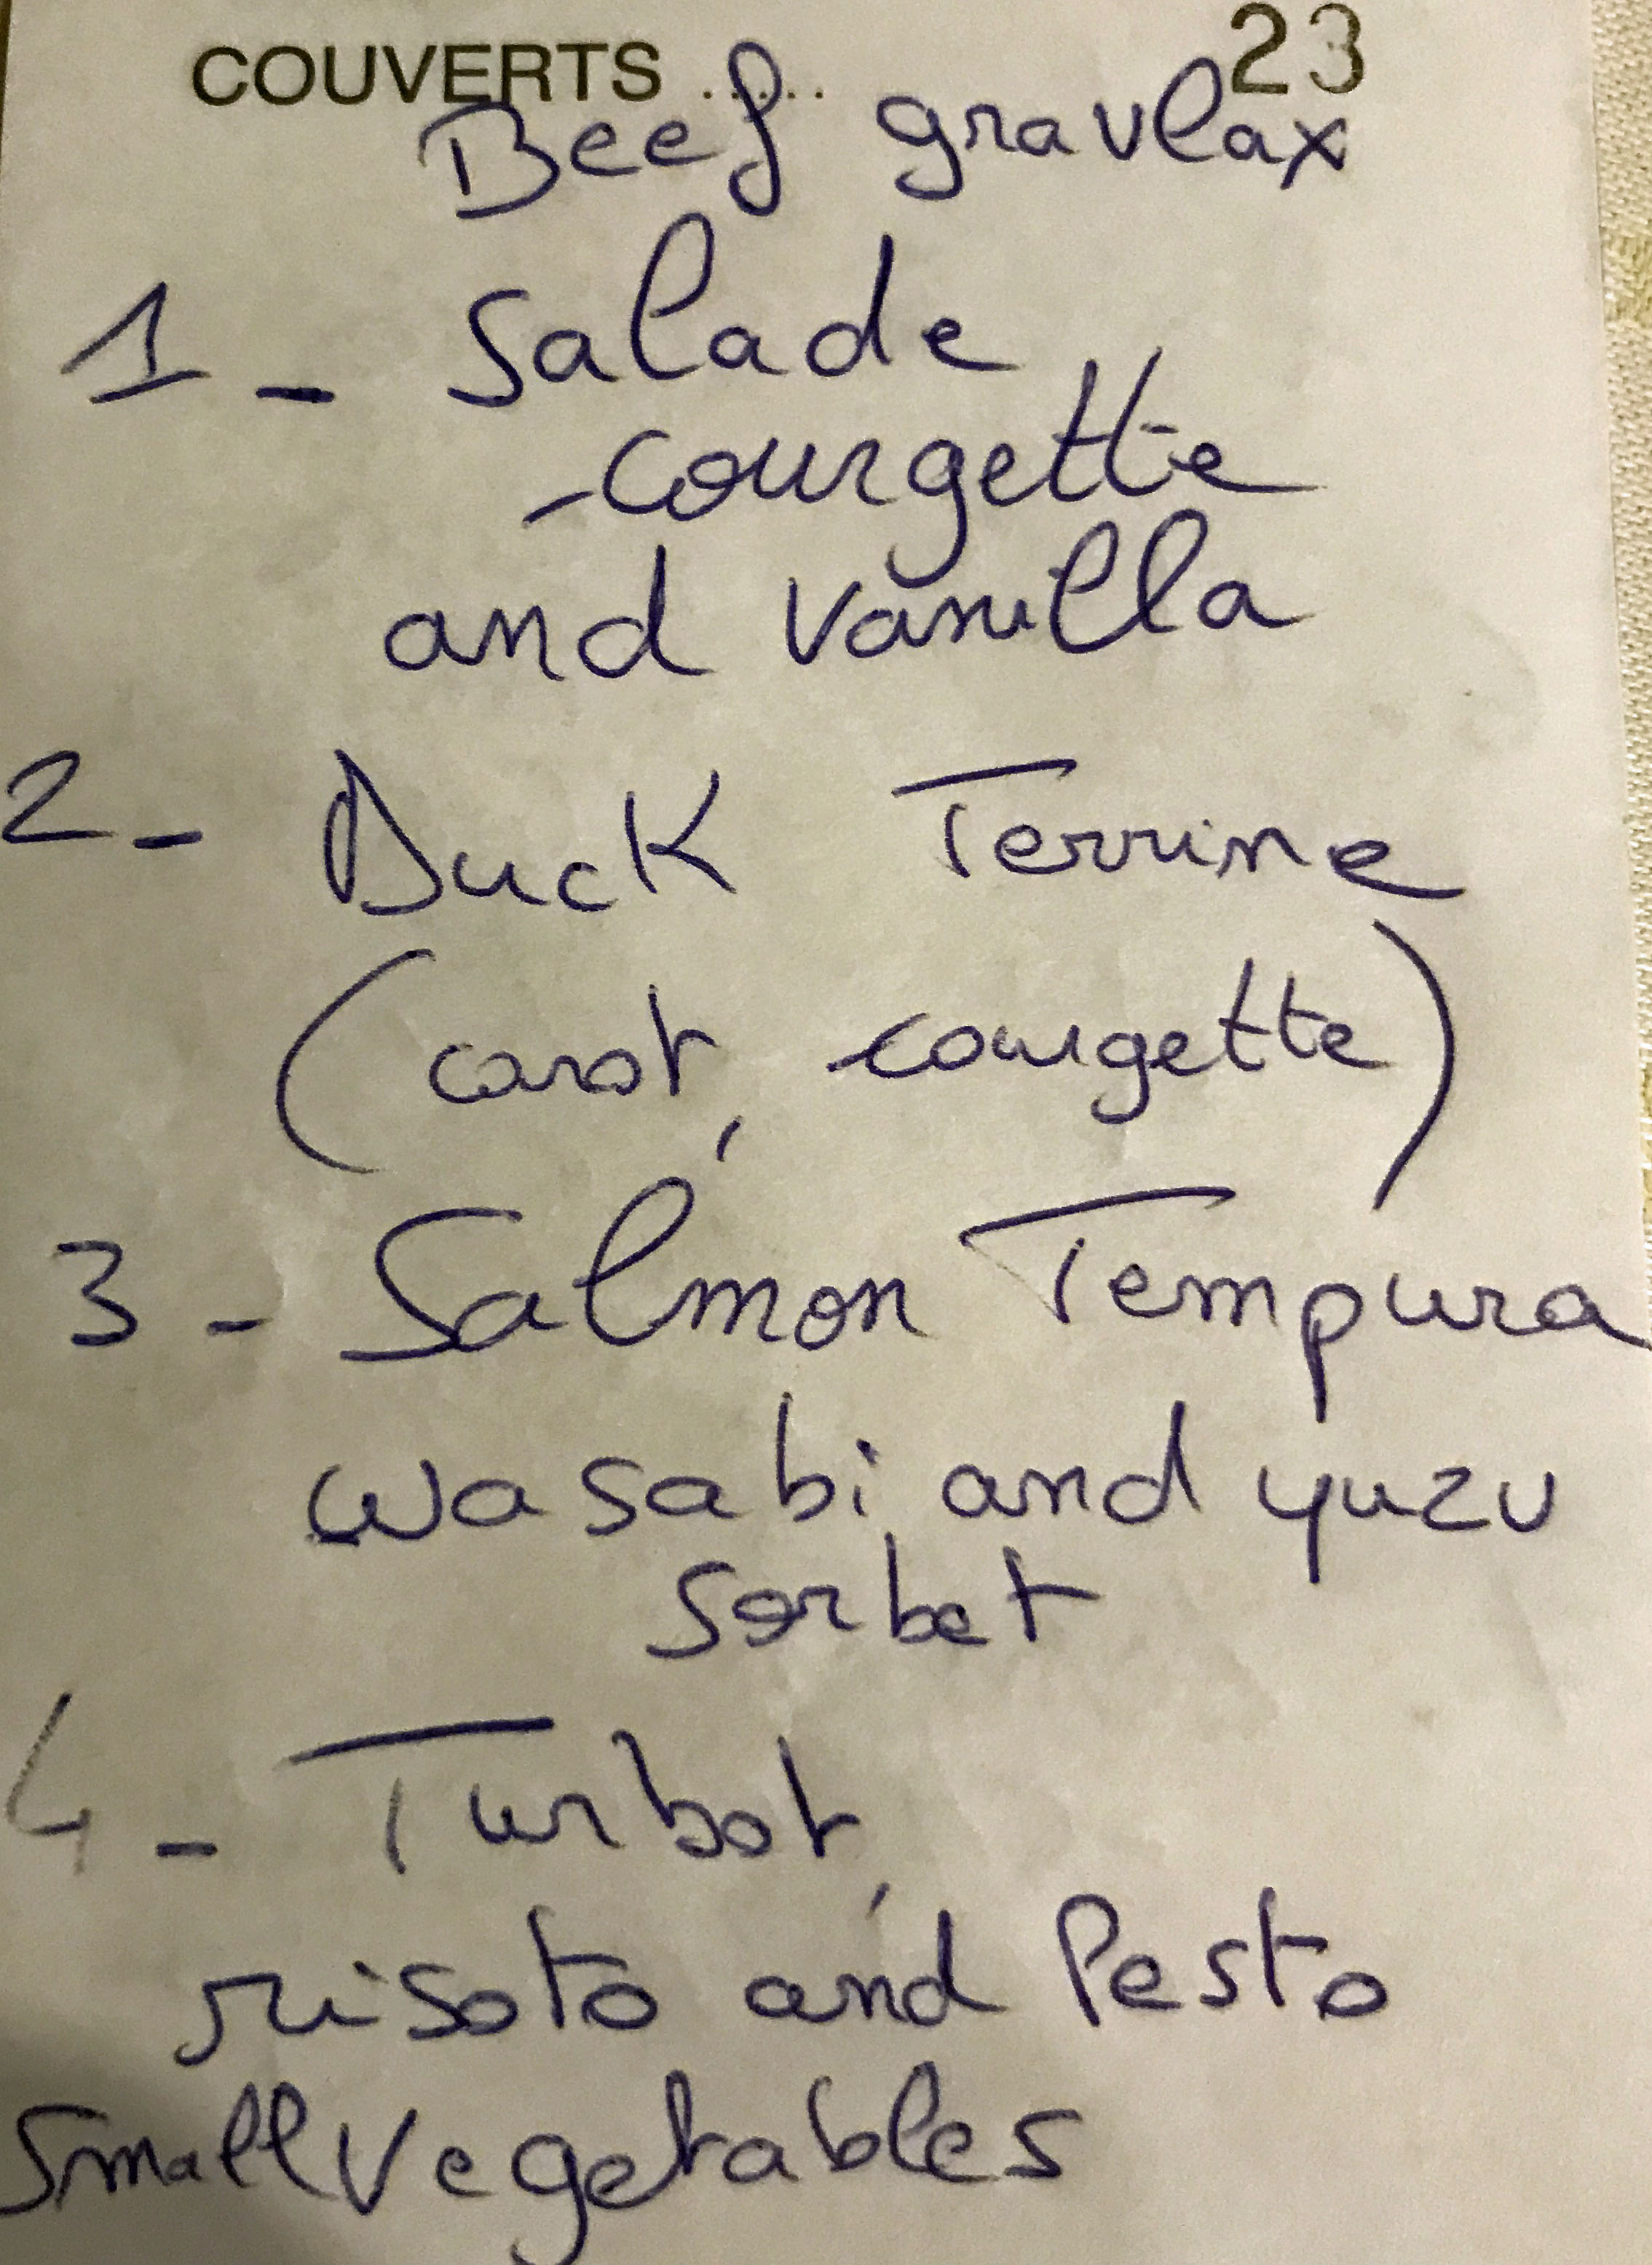 COUVERTS ..... 23
Beef gravlax
1 - Salade
- courgette
and vanilla
2 - Duck Terrine
(carot, courgette)
3 - Salmon Tempura
wasabi and yuzu
sorbet
4 - Turbot,
risoto and Pesto
Small vegetables